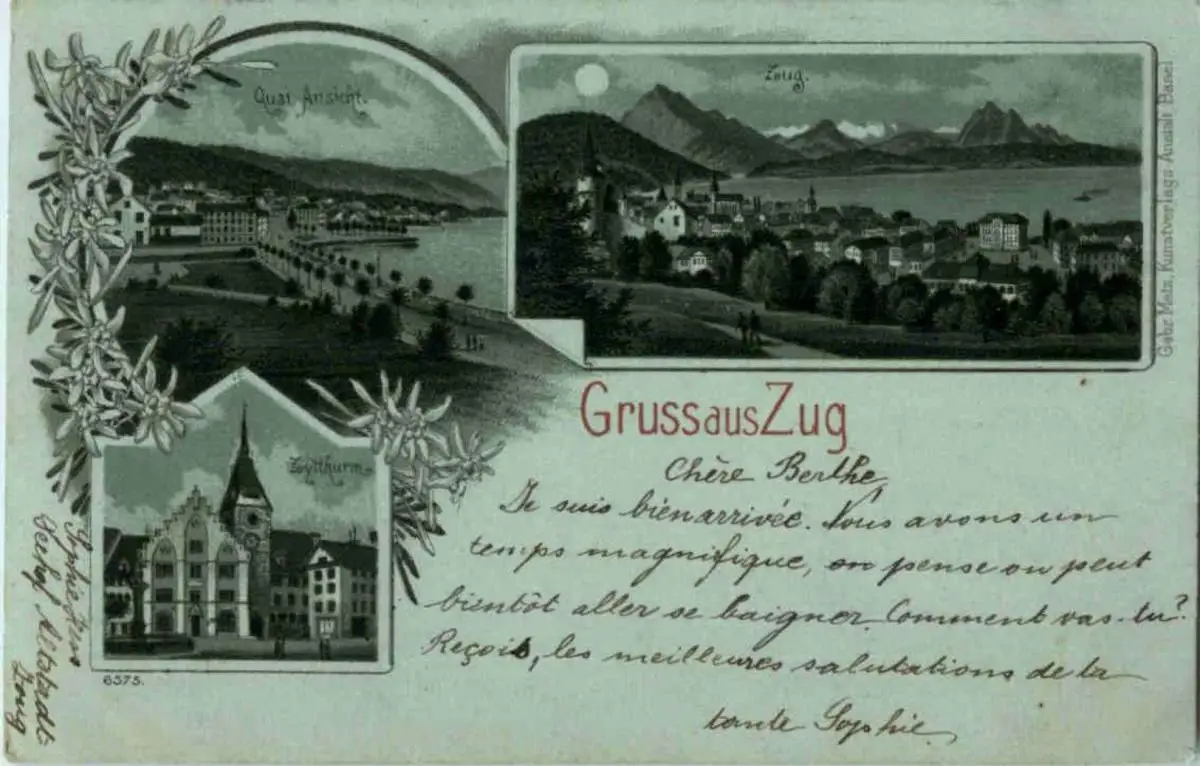 Quai Ansicht.
Zug.
Gebr. Metz, Kunstverlags-Anstalt Basel
Zytthurm.
6575.
Gruss aus Zug
Chère Berthe
Je suis bien arrivée. Nous avons un
temps magnifique, on pense on peut
bientôt aller se baigner. Comment vas-tu?
Reçois, les meilleures salutations de la
tante Sophie
Sophie
Altstadt
Zoug